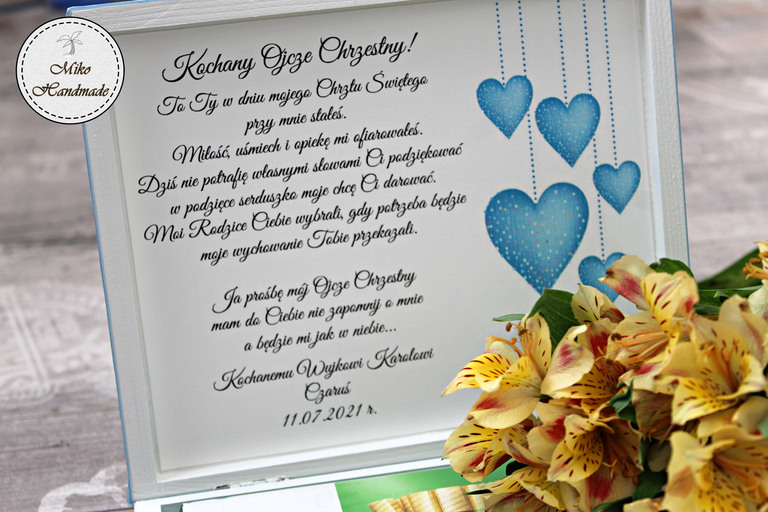 Miko
Handmade
Kochany Ojcze Chrzestny!
To Ty w dniu mojego Chrztu Świętego
przy mnie stałeś.
Miłość, uśmiech i opiekę mi ofiarowałeś.
Dziś nie potrafię własnymi słowami Ci podziękować
w podzięce serduszko moje chcę Ci darować.
Moi Rodzice Ciebie wybrali, gdy potrzeba będzie
moje wychowanie Tobie przekazali.
Ja prośbę mój Ojcze Chrzestny
mam do Ciebie nie zapomnij o mnie
a będzie mi jak w niebie...
Kochanemu Wujkowi Karolowi
Czaruś
11.07.2021 r.